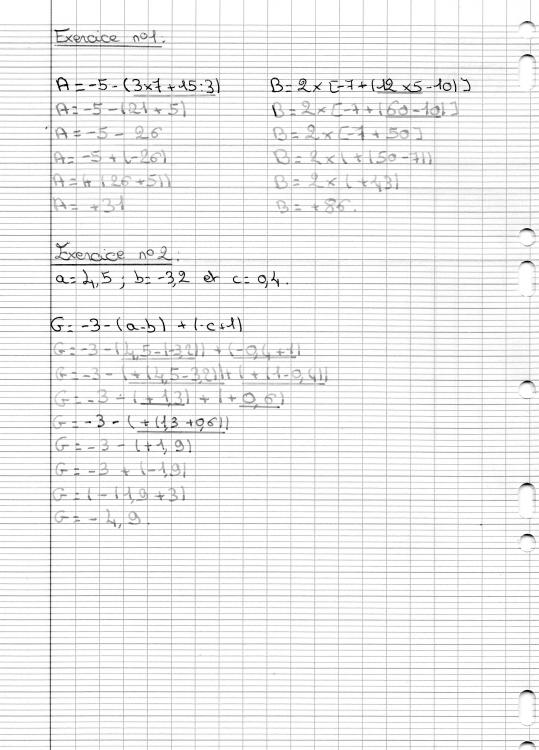 Exercice n°1.
A = -5 - (3×7 + 15:3)
A = -5 - (21 + 5)
A = -5 - 26
A = -5 + (-26)
A = (+ (26 + 5))
A = +31
B = 2 × [-7 + (12 × 5 - 10)]
B = 2 × [-7 + (60 - 10)]
B = 2 × [-7 + 50]
B = 2 × (+ (50 - 7))
B = 2 × (+43)
B = +86.
Exercice n°2.
a = 4,5 ; b = -3,2 et c = 0,4.
G = -3 - (a-b) + (-c+1)
G = -3 - (4,5 - (-3,2)) + (-0,4 + 1)
G = -3 - (+ (4,5 - 3,2)) + (+ (1 - 0,4))
G = -3 - (+ 1,3) + (+ 0,6)
G = -3 - (+ (1,3 + 0,6))
G = -3 - (+1,9)
G = -3 + (-1,9)
G = (- (1,9 + 3)
G = - 4,9.